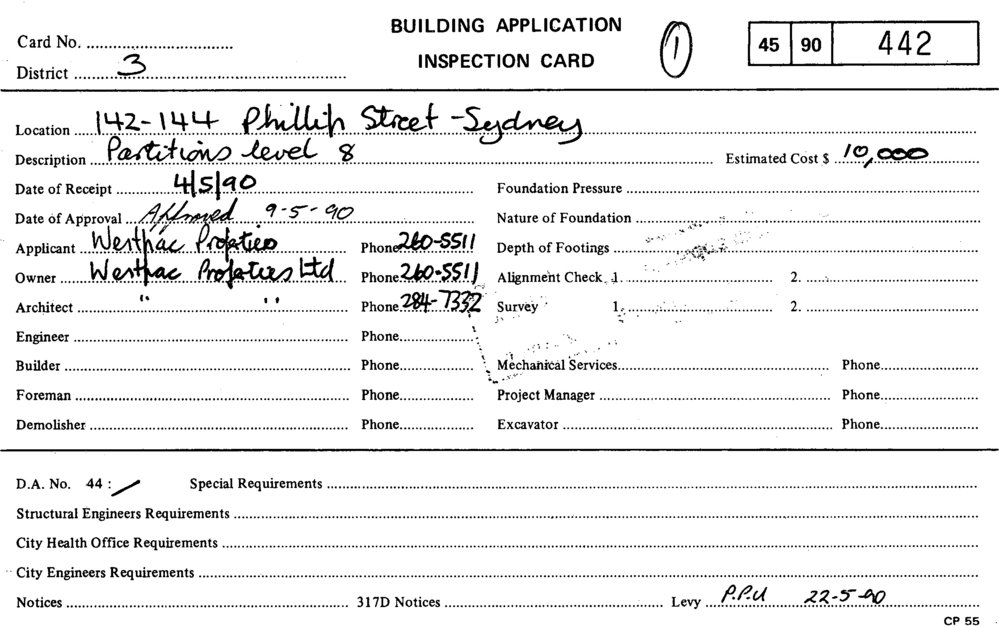 BUILDING APPLICATION
INSPECTION CARD
Card No.
District 3
1
45 90 442
Location 142-144 Phillip Street - Sydney
Description Partitions level 8 Estimated Cost $ 10,000
Date of Receipt 4/5/90 Foundation Pressure
Date of Approval Approved 9-5-90 Nature of Foundation
Applicant Westpac Properties Phone 260-5511 Depth of Footings
Owner Westpac Properties Ltd Phone 260-5511 Alignment Check 1. 2.
Architect " " Phone 284-7332 Survey 1. 2.
Engineer Phone
Builder Phone Mechanical Services Phone
Foreman Phone Project Manager Phone
Demolisher Phone Excavator Phone
D.A. No. 44 : / Special Requirements
Structural Engineers Requirements
City Health Office Requirements
City Engineers Requirements
Notices 317D Notices Levy P.P.U 22-5-90
CP 55